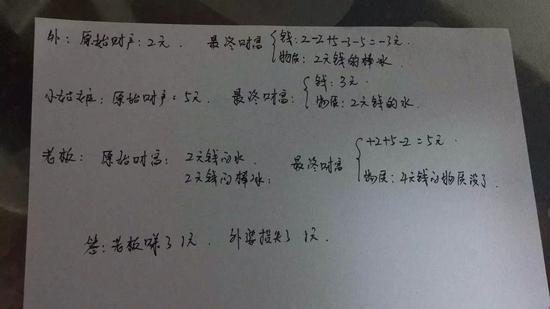 外：原始财产：2元． 最终财富 钱：2-2+5-3-5=-3元．
物质：2元钱的棒冰
小姑娘：原始财产：5元． 最终财富： 钱：3元
物质：2元钱的水．
老板： 原始财富： 2元钱的水． 最终财富 +2+5-2=5元．
2元钱的棒冰； 物质：4元钱的物质没了．
答：老板赚了1元． 外婆损失了1元．